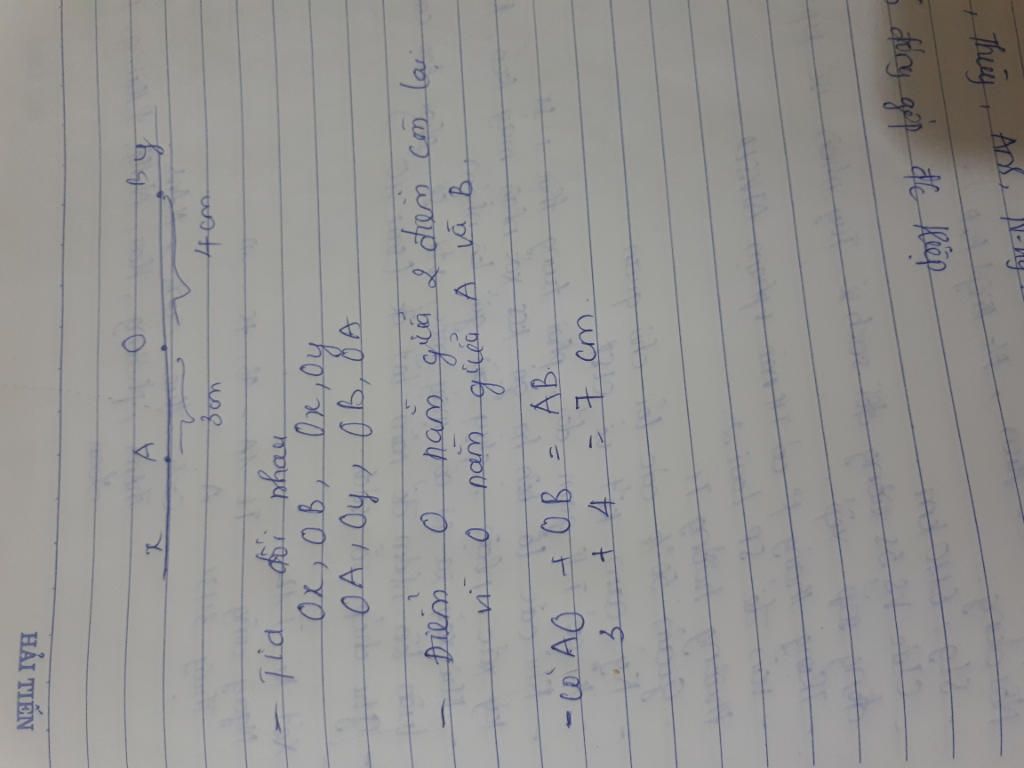 HẢI TIẾN
x A O B y
3cm 4cm
- Tia đối nhau
Ox, OB, Ox, Oy
OA, Oy, OB, OA
- Điểm O nằm giữa 2 điểm còn lại
vì O nằm giữa A và B
- Có AO + OB = AB
3 + 4 = 7 cm.
, Thủy, Anh,
đóng góp để tiếp